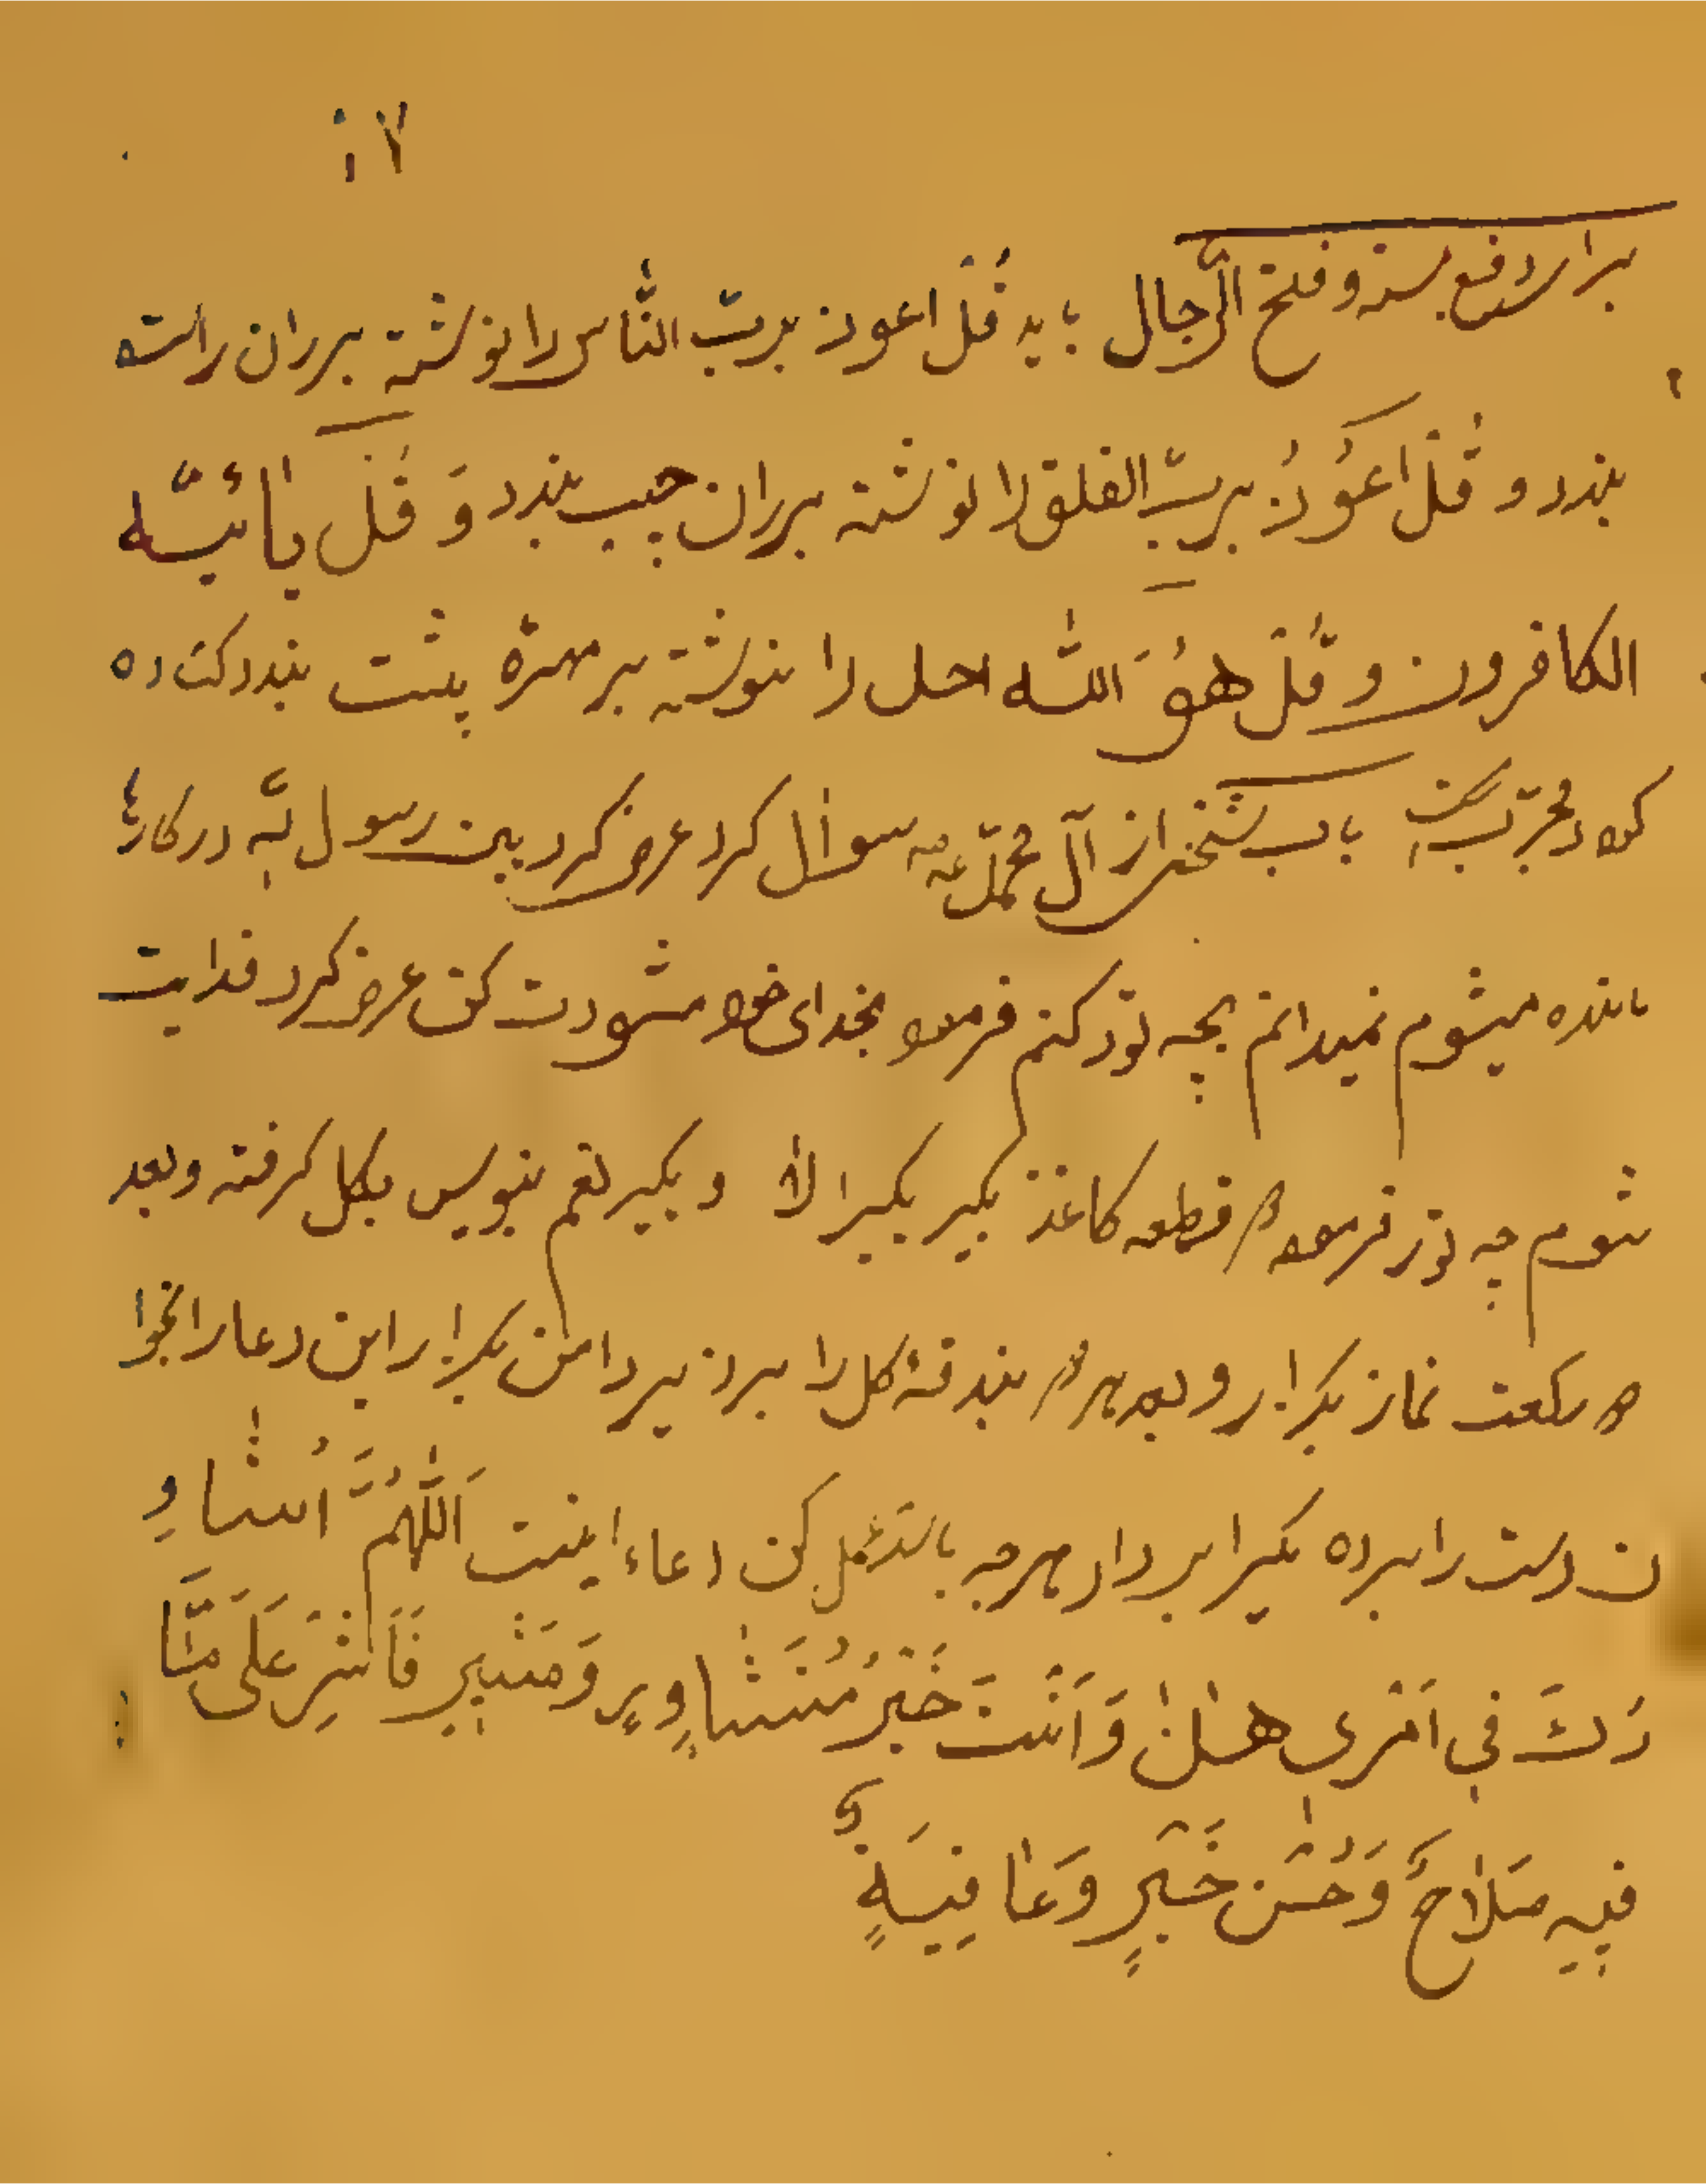 برای دفع بسته و فلج الرّجال باید قُل اعوذ بربّ النّاس را نوشته بر ران راست
بندد و قُل اعُوذُ بربّ الفلق را نوشته بر ران چپ بندد وَ قُل یا ائیّها
الکافرون و قُل هوَ الله احد را بنوشته بر مهرهٔ پشت بندد کشاده
کردد مجرّب است باب شخصی از آل محمّد سوال کرد عرض کرد یبن رسول لله در کارها
مانده میشوم نمیدانم بچه نوع کنم فرمود بخدای خود مشورت کن عرض کرد فدایت
شوم چه نوع فرمود دو قطعه کاغذ بکیر بکیرا لا و بکیر نعم بنویس بکل کرفته و بعد
دو رکعت نماز بکزار و بعد هر دو بندقهٔ کل را ببر در زیر دامن بکزار این دعا را بخوا
ن دست را برده یکیرا بردار هرچه باشد عمل کن دعاء اینست اَللّهُمَّ اُشاوِ
رُكَ فی اَمْری هذا وَ اَنْتَ خَیْرُ مُسْتَشاوِرٍ وَ مَشیرٍ فَاَشِرْ عَلَیَّ مَا
فیهِ صَلاحٌ وَ حُسْن خَیْرٍ وَ عافِیَةٍ